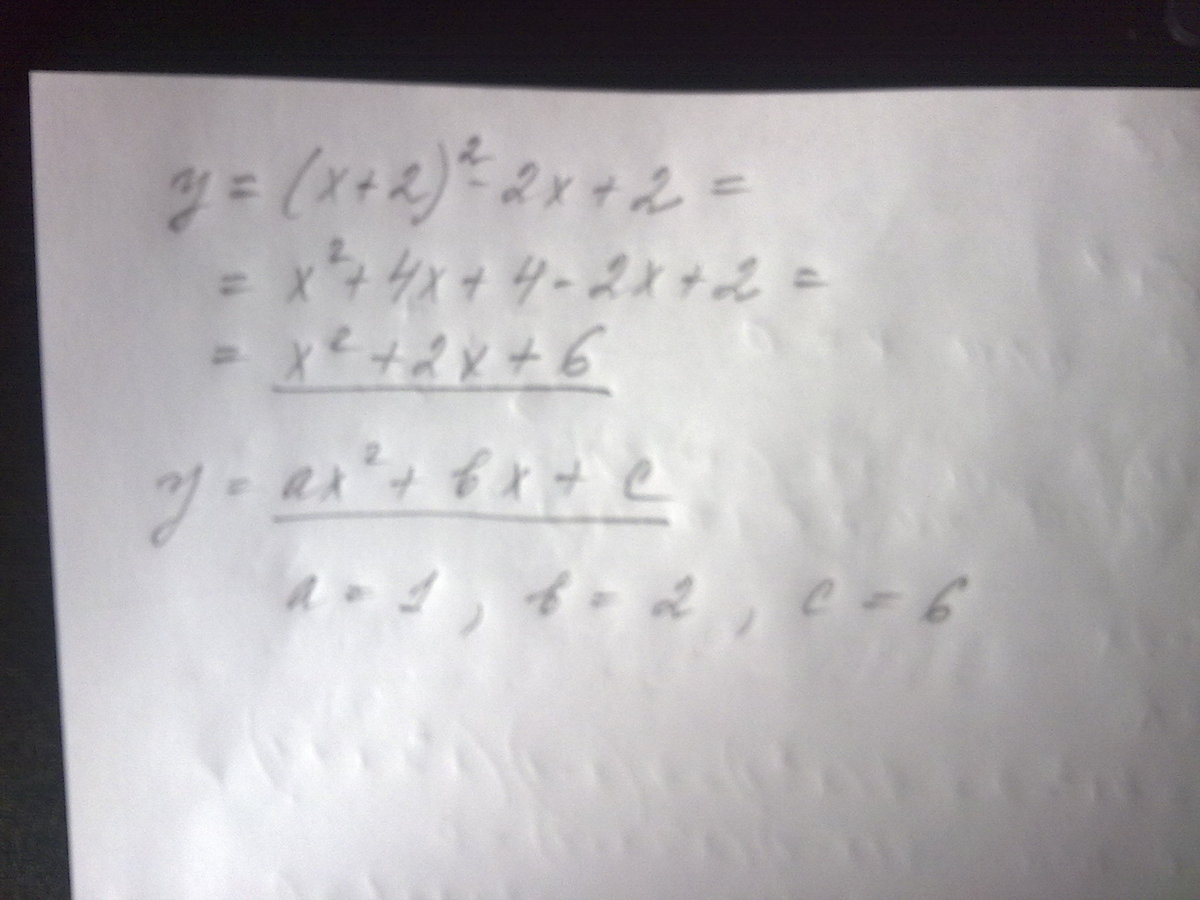 y = (x+2)² - 2x + 2 =
= x² + 4x + 4 - 2x + 2 =
= x² + 2x + 6
y = ax² + bx + c
a = 1, b = 2, c = 6